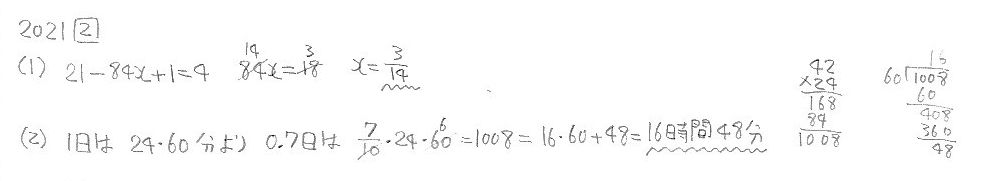 2021 2
(1) 21-84x+1=4 84x=18 14 3 x=3/14
(2) 1日は 24・60分より 0.7日は 7/10・24・60 6 =1008=16・60+48=16時間48分
42
×24
168
84
1008
16
60)1008
60
408
360
48